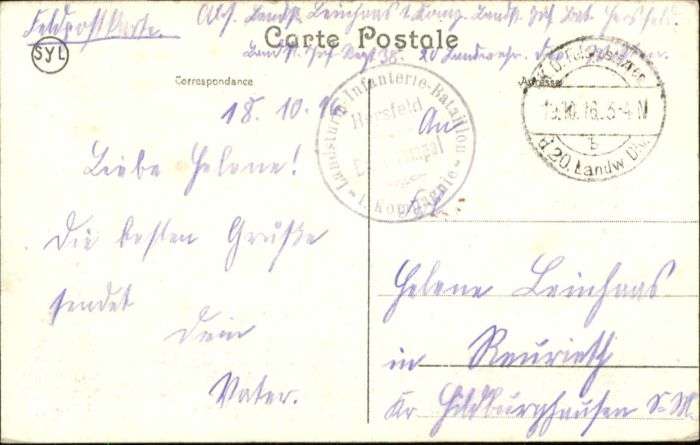 Feldpostkarte. Abs. Landst. Leinhaas 1. Komp. Landst. Inf. Bat. Hersfeld
Landst. Inf. Regt. 38. 20 Landwehr.
Carte Postale
SYL
Correspondance
Adresse
Landsturm-Infanterie-Bataillon
Hersfeld
1. Kompagnie
16. 3-4 N
b
d. 20. Landw. Div.
18. 10. 16
Liebe Helene!
Die besten Grüße
sendet
Dein
Vater.
An
Helene Leinhaas
in Reurieth
Kr Hildburghausen S. M.